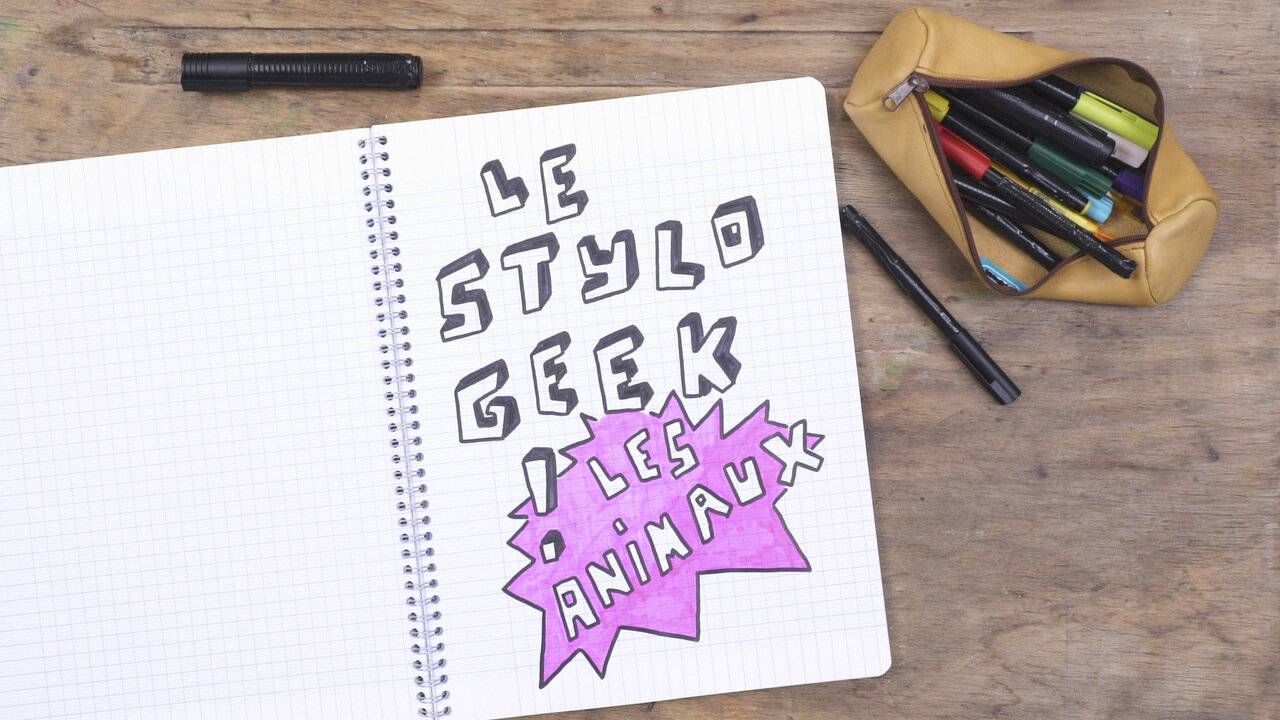 LE
STYLO
GEEK
!
LES
ANIMAUX